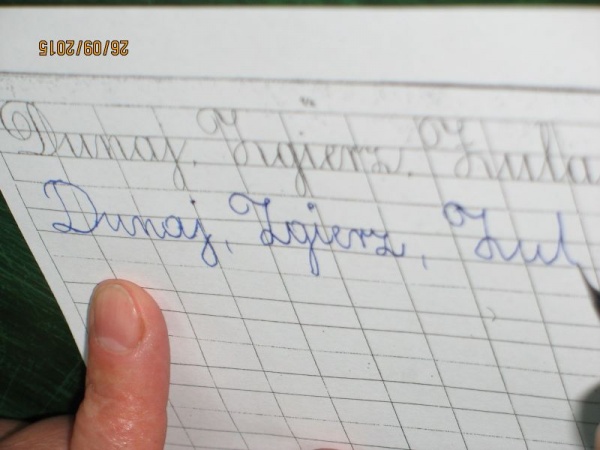 26/09/2015
Dunaj, Zgierz, Zula
Dunaj, Zgierz, Zul